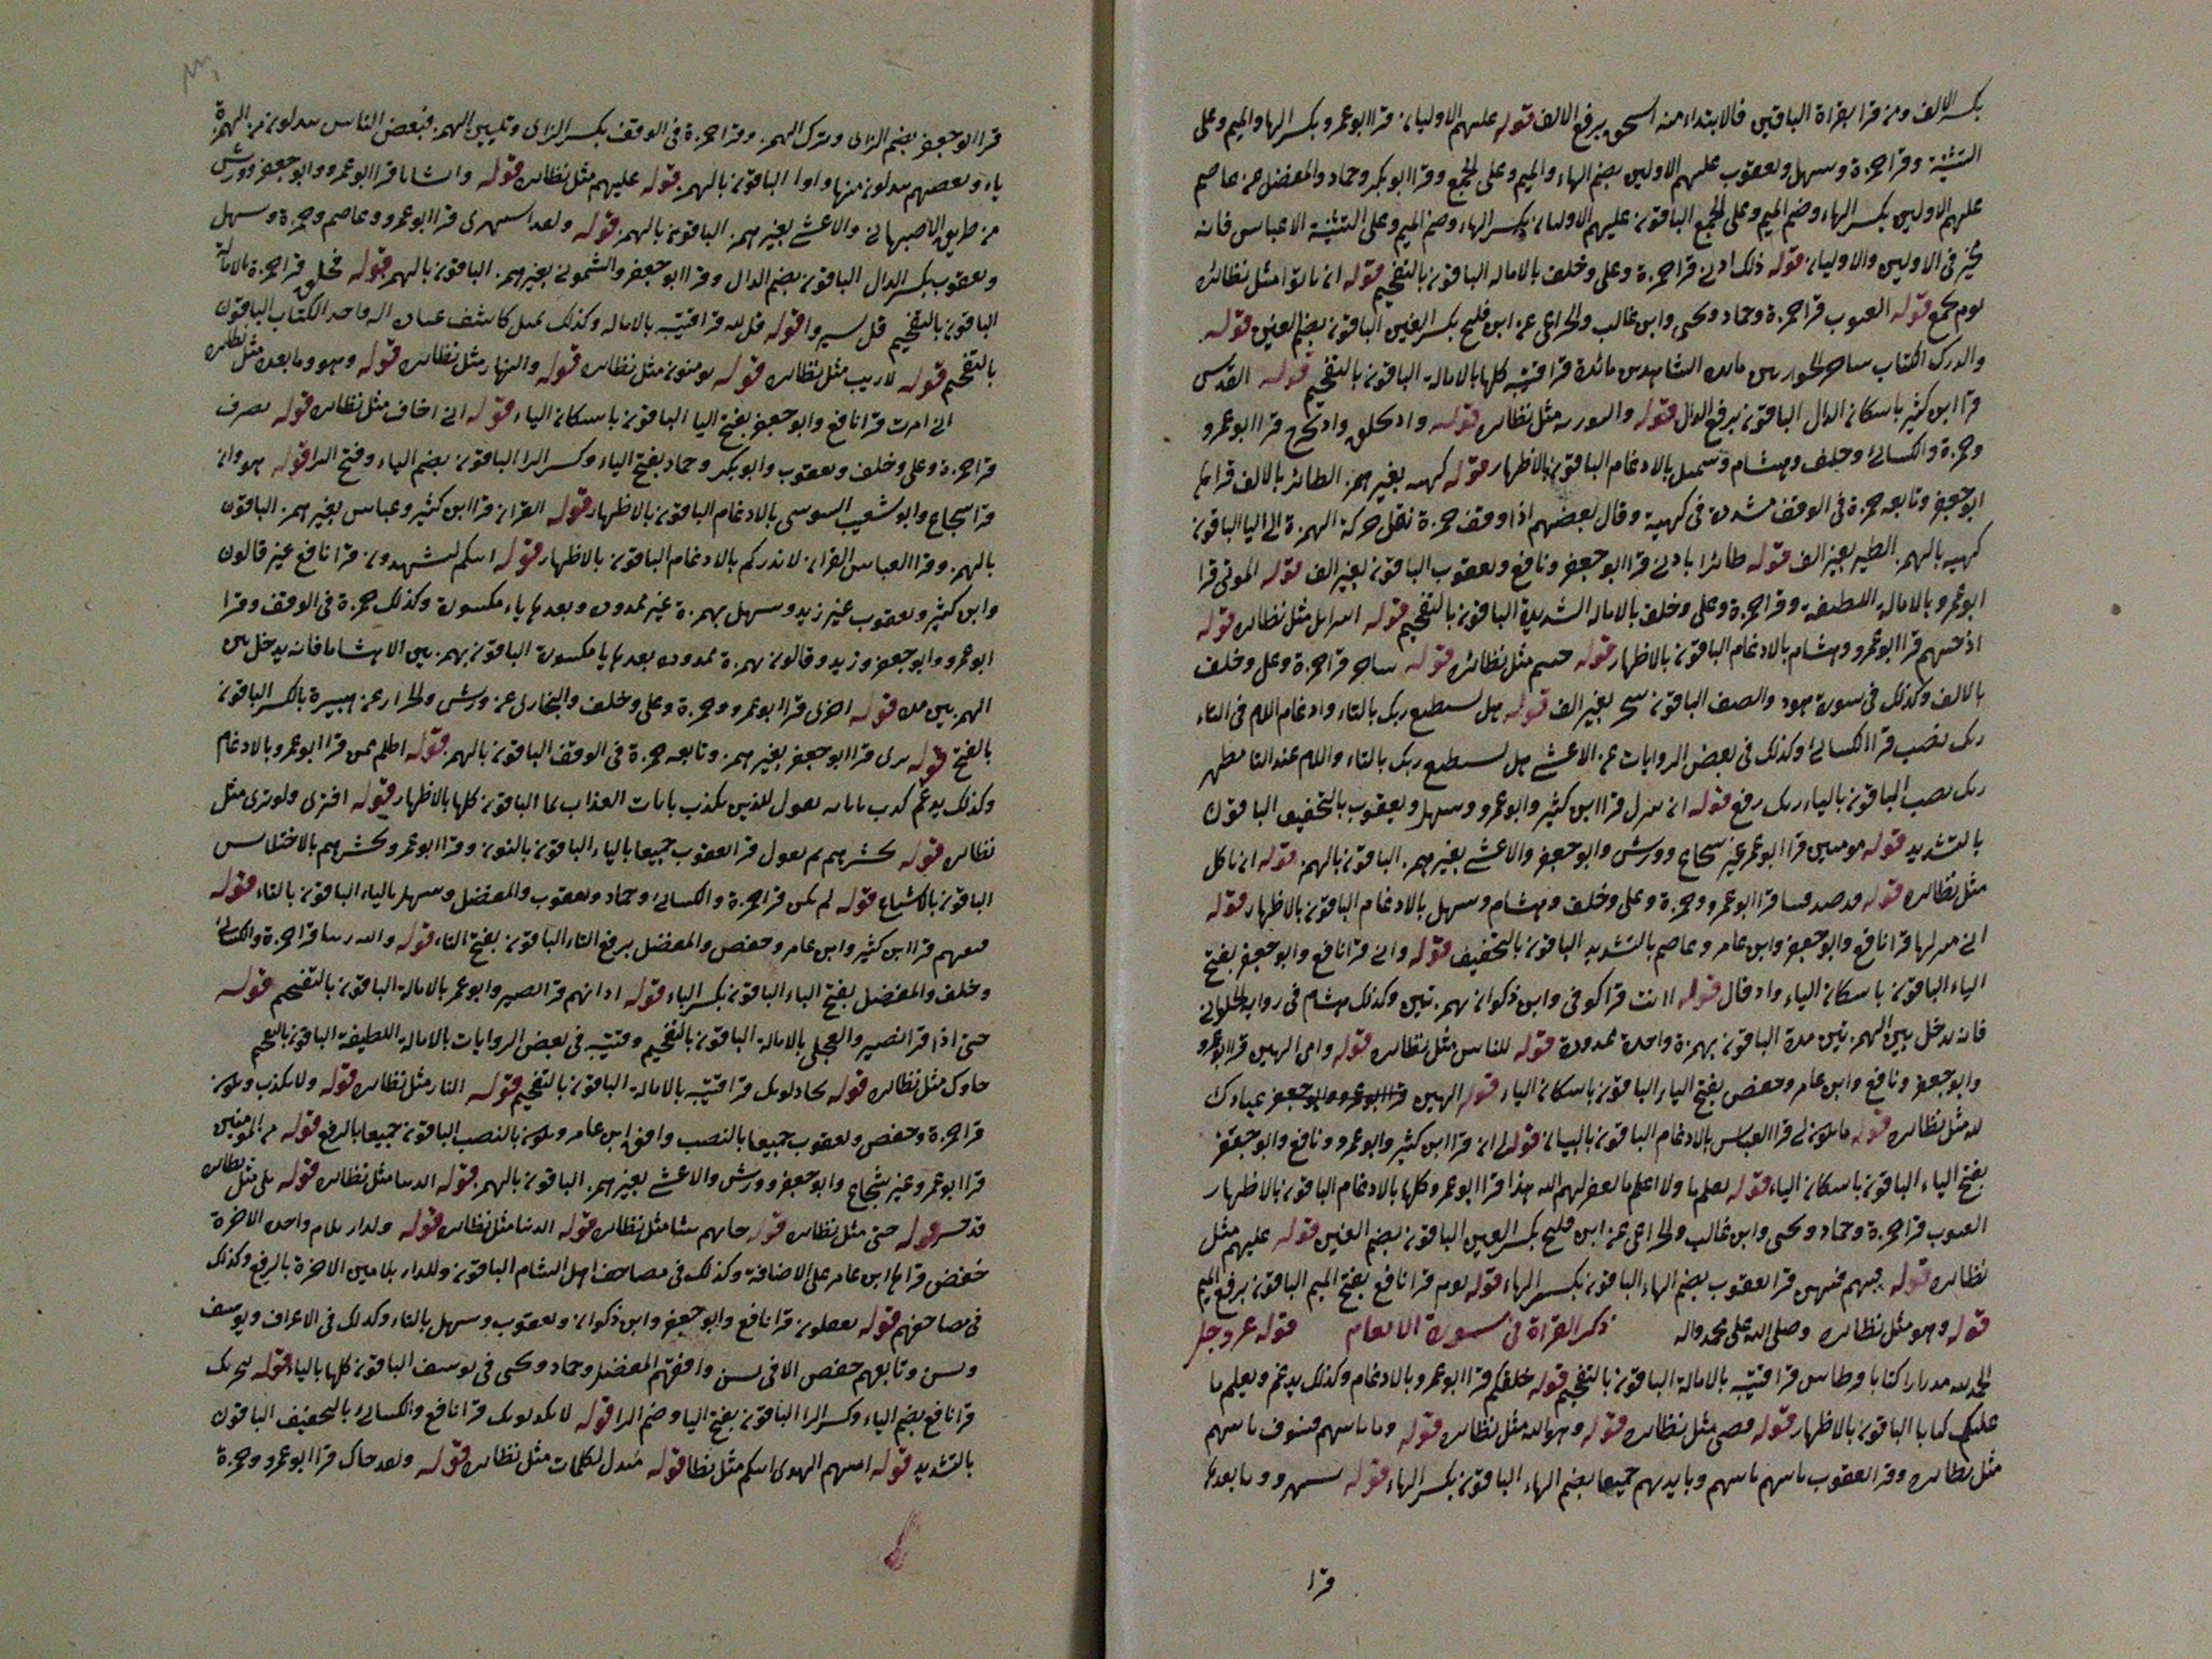 بكسر الالف ومن قرا بقراة الباقين فالابتداء منه استحق برفع الالف قوله عليهم الاوليان قرا ابو عمرو بكسر الها والميم وعلى
التثنية وقرا حمزة وسهل ويعقوب عليهم الاولين بضم الهاء والميم وعلى الجمع وقرا ابو بكر وحماد والمفضل عن عاصم
عليهم الاولين بكسر الهاء وضم الميم وعلى الجمع الباقون عليهم الاوليان بكسر الهاء وضم الميم وعلى التثنية الا عباس فانه
يخير في الاولين والاوليان قوله ذلك ادنى قرا حمزة وعلى وخلف بالاماله الباقون بالتفخيم قوله ان ياتوا مثل نظائره
يوم يجمع قوله الغيوب قرا حمزة وحماد ويحيى وابن غالب والخزاعى عن ابن فليح بكسر الغين الباقون بضم الغين قوله
والدتك الكتاب ساحر الحواريين مايده الشاهدين مائدة قرا قتيبه كلها بالامالة الباقون بالتفخيم قوله القدس
قرا ابن كثير باسكان الدال الباقون برفع الدال قوله والتورية مثل نظائره قوله واذ تخلق واذ تخرج قرا ابو عمرو
وحمزة والكسائى وخلف وهشام وسهل بالادغام الباقون بالاظهار قوله كهيه بغير همز الطائر بالالف قراها
ابو جعفر وتابعه حمزة في الوقف مشددة في كهيية وقال بعضهم اذا وقف حمزة نقل حركة الهمزة الى اليا الباقون
كهيه بالهمز الطير بغير الف قوله طائرا باذنى قرا ابو جعفر ونافع ويعقوب الباقون بغير الف قوله الموتى قرا
ابو عمرو بالامالة اللطيفة وقرا حمزة وعلى وخلف بالاماله الشديدة الباقون بالتفخيم قوله اسرايل مثل نظائره قوله
اذ جئتهم قرا ابو عمرو وهشام بالادغام الباقون بالاظهار قوله جئتهم مثل نظائره قوله ساحر قرا حمزة وعلى وخلف
بالالف وكذلك في سورة هود والصف الباقون سحر بغير الف قوله هل يستطيع ربك بالتاء وادغام اللام في التاء
ربك نصب قرا الكسائى وكذلك في بعض الروايات عن الاعشى هل تستطيع ربك بالتاء واللام عند التا مظهر
ربك نصب الباقون بالياء ربك رفع قوله ان ينزل قرا ابن كثير وابو عمرو وسهل ويعقوب بالتخفيف الباقون
بالتشديد قوله مومنين قرا ابو عمر غير شجاع وورش وابو جعفر والاعشى بغير همز الباقون بالهمز قوله ان ناكل
مثل نظائره قوله قد صدقتنا قرا ابو عمرو وحمزة وعلى وخلف وهشام وسهل بالادغام الباقون بالاظهار قوله
انى منزلها قرا نافع وابو جعفر وابن عامر وعاصم بالتشديد الباقون بالتخفيف قوله وانى قرا نافع وابو جعفر بفتح
الياء الباقون باسكان الياء واذ قال قوله اانت قرا كوفى وابن ذكوان بهمزتين وكذلك هشام في رواية الحلوانى
فانه يدخل بين الهمزتين مدة الباقون بهمزة واحدة ممدودة قوله للناس مثل نظائره قوله وامى الهين قرا ابو عمرو
وابو جعفر ونافع وابن عامر وحفص بفتح الياء الباقون باسكان الياء قوله الهين قرا ابو عمرو وابو جعفر عبادك
لله مثل نظائره قوله ما يكون لى قرا العباس بالادغام الباقون بالبيان قوله لى ان قرا ابن كثير وابو عمرو ونافع وابو جعفر
بفتح الياء الباقون باسكان الياء قوله تعلم ما ولا اعلم ما تغفر لهم الله هذا قرا ابو عمرو كلها بالادغام الباقون بالاظهار
الغيوب قرا حمزة وحماد ويحيى وابن غالب والخزاعى عن ابن فليح بكسر الغين الباقون بضم الغين قوله عليهم مثل
نظائره قوله فيهم فيهن قرا يعقوب بضم الهاء الباقون بكسر الهاء قوله يوم قرا نافع بفتح الميم الباقون برفع الميم
قوله وهو مثل نظائره وصلى الله على محمد واله ذكر القراة في سورة الانعام قوله عز وجل
الحمد لله مدرارا كتابا قرطاس قرا قتيبه بالامالة الباقون بالتفخيم قوله خلقكم قرا ابو عمرو بالادغام وكذلك يدغم ويعلم ما
عليك كتابا الباقون بالاظهار قوله قضى مثل نظائره قوله وهو الله مثل نظائره قوله وما تاتيهم فسوف ياتيهم
مثل نظائره وقرا يعقوب تاتيهم ياتيهم وبايديهم جميعا بضم الهاء الباقون بكسر الهاء قوله يستهزؤن وما بعده
قرا
قرا ابو جعفر بضم الزاى وترك الهمز وقرا حمزة في الوقف بكسر الزاى وتليين الهمز فبعض الناس يبدلون من الهمزة
ياء وبعضهم يبدلون منها واوا الباقون بالهمز قوله عليهم مثل نظائره قوله وانشانا قرا ابو عمرو وابو جعفر وورش
من طريق الاصبهانى والاعشى بغير همز الباقون بالهمز قوله ولقد استهزى قرا ابو عمرو وعاصم وحمزة وسهل
ويعقوب بكسر الدال الباقون بضم الدال وقرا ابو جعفر والشمونى بغير همز الباقون بالهمز قوله فحاق قرا حمزة بالامالة
الباقون بالتفخيم قل سيروا قوله قل لله قرا قتيبه بالاماله وكذلك كاشف عباده اله واحد الكتاب الباقون
بالتفخيم قوله لا ريب مثل نظائره قوله يومنون مثل نظائره قوله والنهار مثل نظائره قوله وهو وما بعده مثل نظائره
انى امرت قرا نافع وابو جعفر بفتح اليا الباقون باسكان الياء قوله انى اخاف مثل نظائره قوله يصرف
قرا حمزة وعلى وخلف ويعقوب وابو بكر وحماد بفتح الياء وكسر الرا الباقون بضم الياء وفتح الرا قوله هو وان
قرا شجاع وابو شعيب السوسى بالادغام الباقون بالاظهار قوله القران قرا ابن كثير وعباس بغير همز الباقون
بالهمز وقرا العباس القران لانذركم بالادغام الباقون بالاظهار قوله ائنكم لتشهدون قرا نافع غير قالون
وابن كثير ويعقوب غير زيد وسهل بهمزة غير ممدودة وبعدها ياء مكسورة وكذلك حمزة في الوقف وقرا
ابو عمرو وابو جعفر وزيد وقالون بهمزة ممدوده بعدها يا مكسورة الباقون بهمزتين الا هشاما فانه يدخل بين
الهمزتين مده قوله اخرى قرا ابو عمرو وحمزة وعلى وخلف والبخارى عن ورش والخزاز عن هبيرة بالكسر الباقون
بالفتح قوله برى قرا ابو جعفر بغير همز وتابعه حمزة في الوقف الباقون بالهمز قوله اظلم ممن قرا ابو عمرو بالادغام
وكذلك يدغم كذب باياته نقول للذين نكذب بايات العذاب بما الباقون كلها بالاظهار قوله افترى ولو ترى مثل
نظائره قوله نحشرهم ثم نقول قرا يعقوب جميعا بالياء الباقون بالنون وقرا ابو عمرو نحشرهم بالاختلاس
الباقون بالاشباع قوله لم تكن قرا حمزة والكسائى وحماد ويعقوب والمفضل وسهل بالياء الباقون بالتاء قوله
فتنتهم قرا ابن كثير وابن عامر وحفص والمفضل برفع التاء الباقون بفتح التاء قوله والله ربنا قرا حمزة والكسائى
وخلف والمفضل بفتح الباء الباقون بكسر الباء قوله اذانهم قرا نصير وابو عمر بالامالة الباقون بالتفخيم قوله
حتى اذا قرا نصير والعجلى بالامالة الباقون بالتفخيم وقتيبه في بعض الروايات بالامالة اللطيفة الباقون بالتفخيم
جاوك مثل نظائره قوله يجادلونك قرا قتيبه بالامالة الباقون بالتفخيم قوله النار مثل نظائره قوله ولا نكذب ونكون
قرا حمزة وحفص ويعقوب جميعا بالنصب وافق ابن عامر ونكون بالنصب الباقون جميعا بالرفع قوله من المومنين
قرا ابو عمرو غير شجاع وابو جعفر وورش والاعشى بغير همز الباقون بالهمز قوله الدنيا مثل نظائره قوله بلى مثل نظائره
قد خسر قوله حتى مثل نظائره قوله جاتهم مثل نظائره قوله الدنيا مثل نظائره قوله ولدار بلام واحده الاخرة
خفض قراها ابن عامر على الاضافة وكذلك في مصاحف اهل الشام الباقون وللدار بلامين الاخرة بالرفع وكذلك
في مصاحفهم قوله تعقلون قرا نافع وابو جعفر وابن ذكوان ويعقوب وسهل بالتاء وكذلك في الاعراف ويوسف
ويسن وتابعهم حفص الا في يسن وافقهم المفضل وحماد ويحيى في يوسف الباقون كلها بالياء قوله ليحزنك
قرا نافع بضم الياء وكسر الزا الباقون بفتح اليا وضم الزا قوله لا يكذبونك قرا نافع والكسائى بالتخفيف الباقون
بالتشديد قوله اتيهم الهدى اتيكم مثل نظا قوله مبدل لكلمات مثل نظائره قوله ولقد جاك قرا ابو عمرو وحمزة